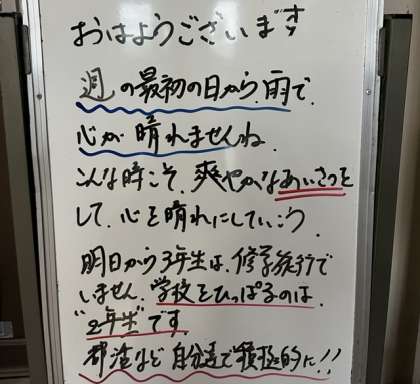 おはようございます
週の最初の日から、雨で、
心が晴れませんね。
こんな時こそ、爽やかなあいさつを
して、心を晴れにしていこう。
明日から3年生は、修学旅行で
いません。学校をひっぱるのは、
“2年生”です。
部活など自分達で積極的に!!